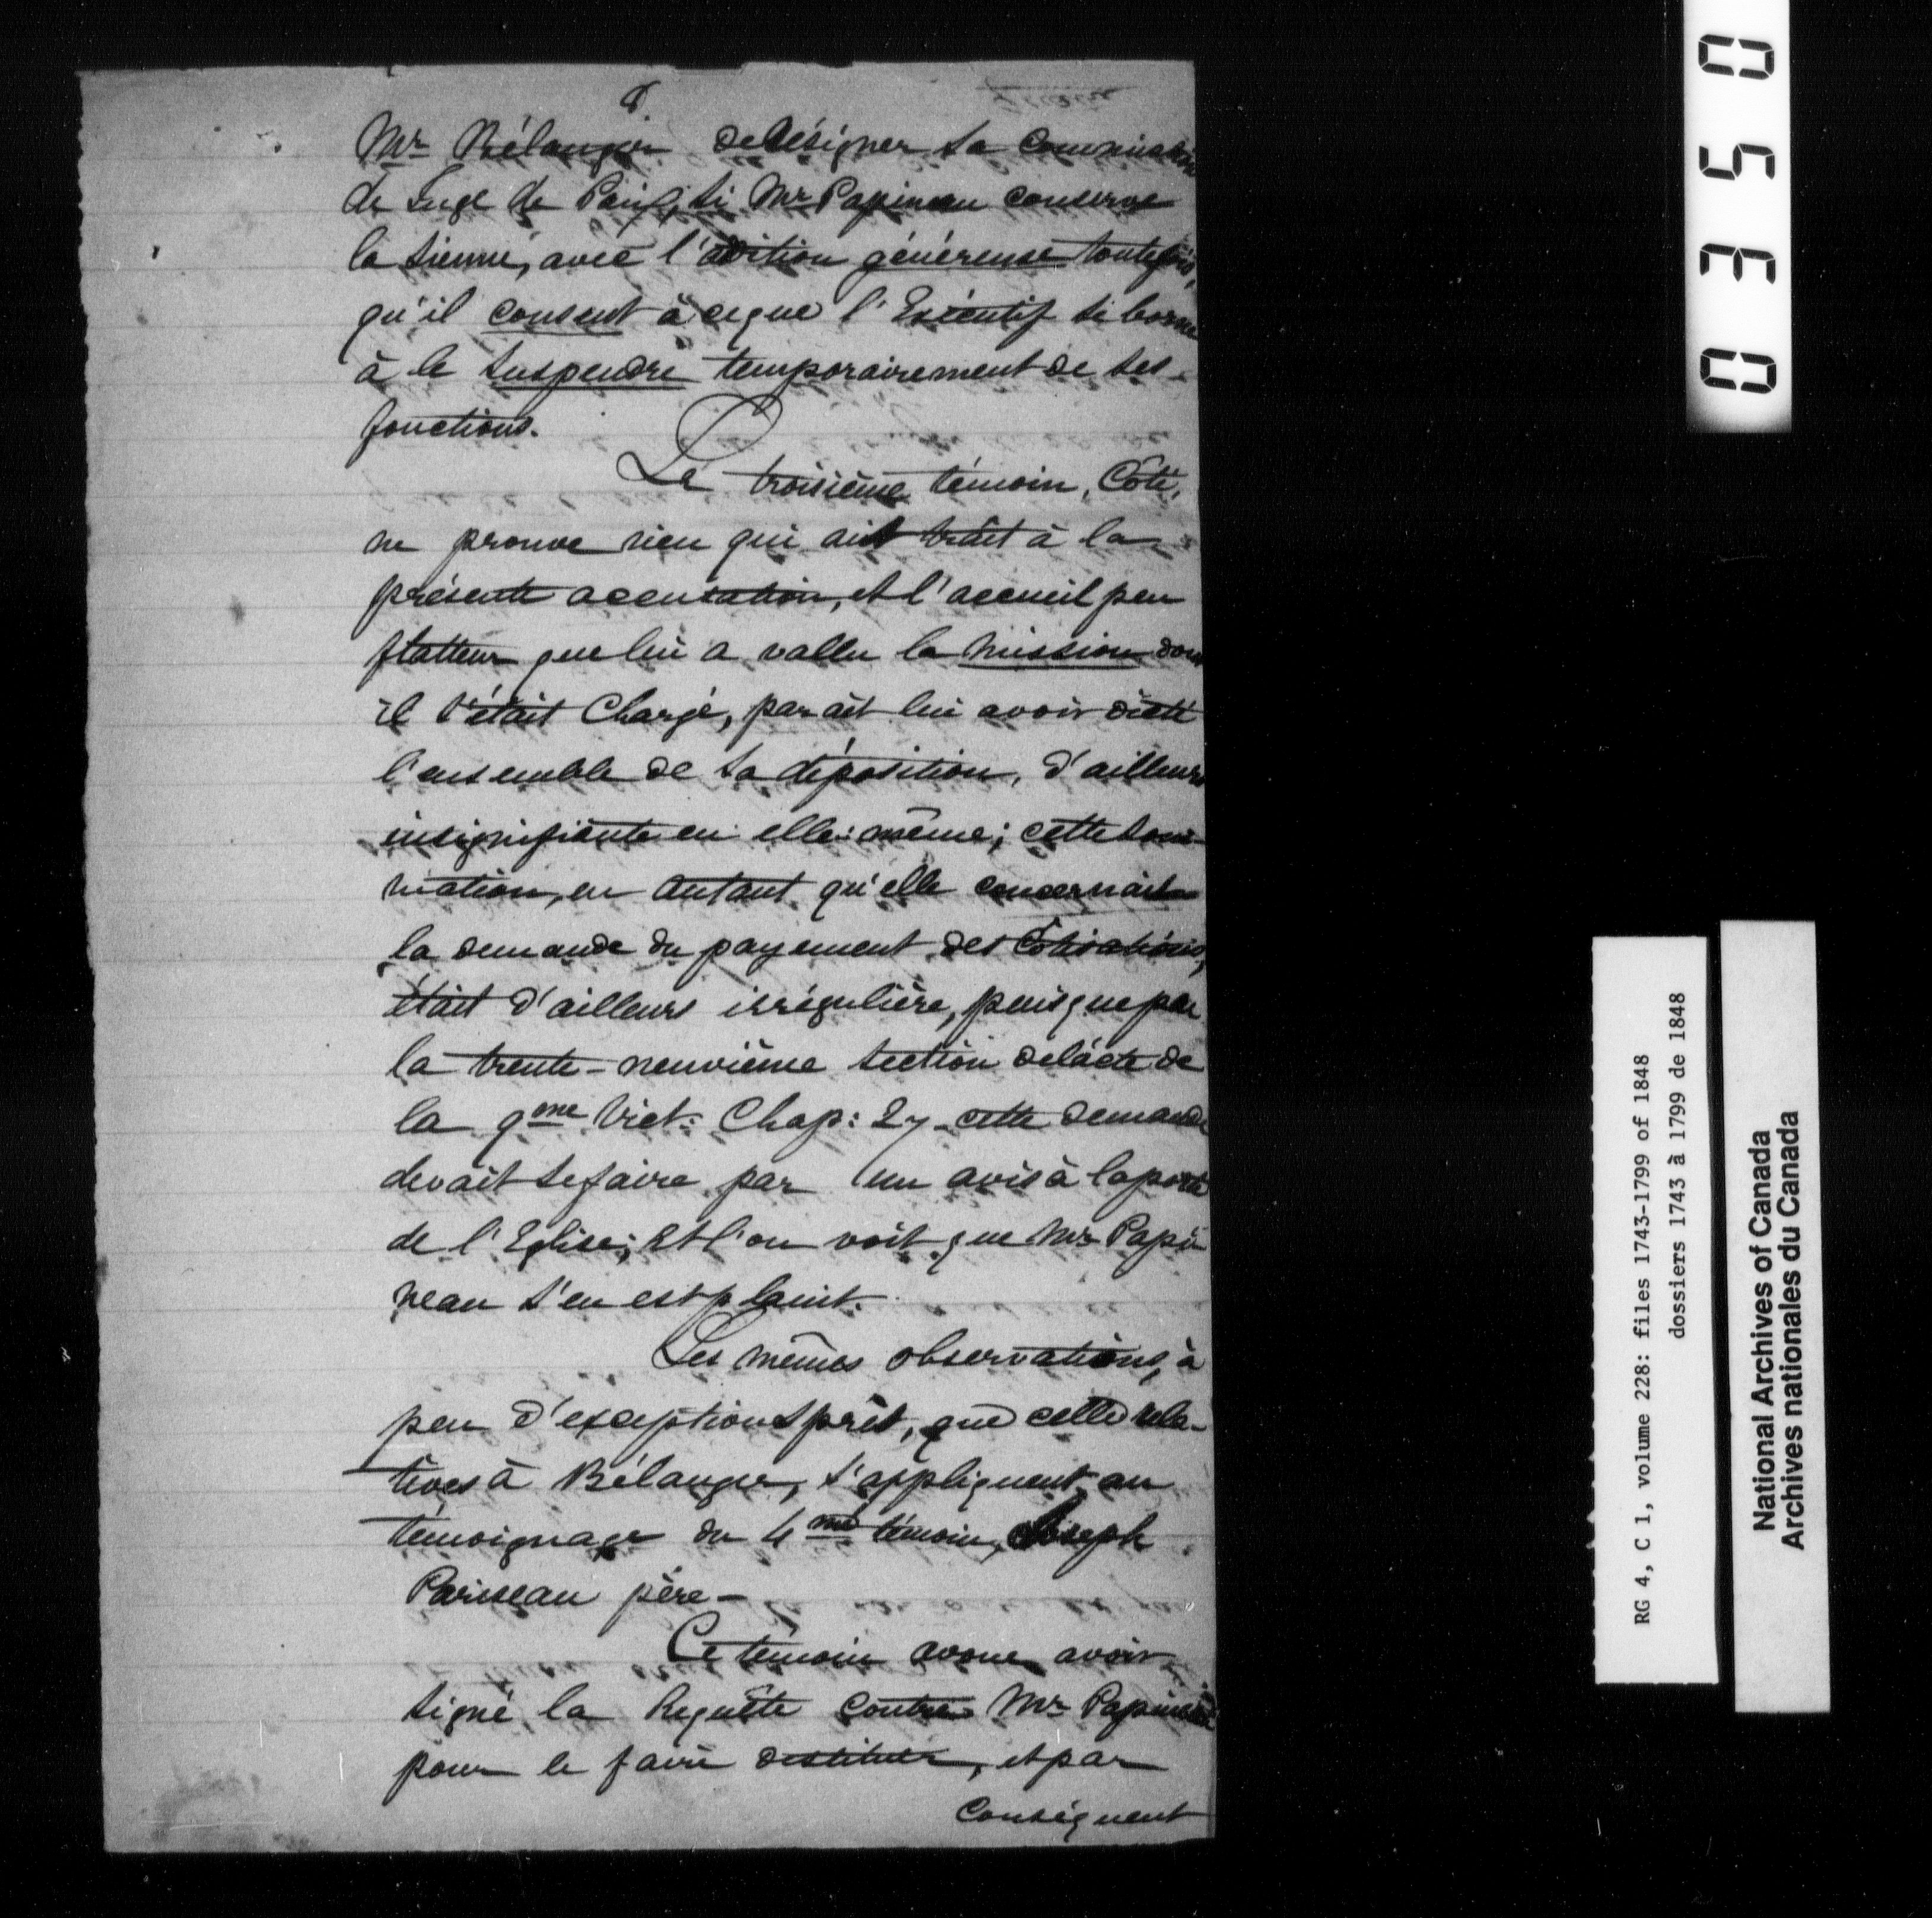 8
Mr Bélanger de désigner sa Commission
de Juge de Paix, si Mr Papineau conserve
la sienne, avec l'adition généreuse toutefois,
qu'il consent à ceque l'Exécutif se borne
à le suspendre temporairement de ses
fonctions.
Le troisième témoin, Côté,
ne prouve rien qui ait trait à la
présente accusation, et l'accueil peu
flatteur que lui a vallu la mission dont
il s'était chargé, parait lui avoir dicté
l'ensemble de sa déposition, d'ailleurs
insignifiante en elle-même; cette som-
mation, en autant qu'elle concernait
la demande du payement des Cotisations,
était d'ailleurs irrégulière, puisque par
la trente-neuvième section de l'acte de
la 9me Vict: Chap: 27 cette demande
devait se faire par un avis à la porte
de l'Eglise; et l'on voit que Mr Papi-
neau s'en est plaint.
Les mêmes observations, à
peu d'exceptions près, que celles rela-
tives à Bélanger, s'appliquent au
témoignage du 4me témoin, Joseph
Pariseau père -
Ce témoin avoue avoir
signé la Requête contre Mr Papineau
pour le faire destituer, et par
Conséquent
0350
RG 4, C 1, volume 228: files 1743-1799 of 1848
dossiers 1743 à 1799 de 1848
National Archives of Canada
Archives nationales du Canada